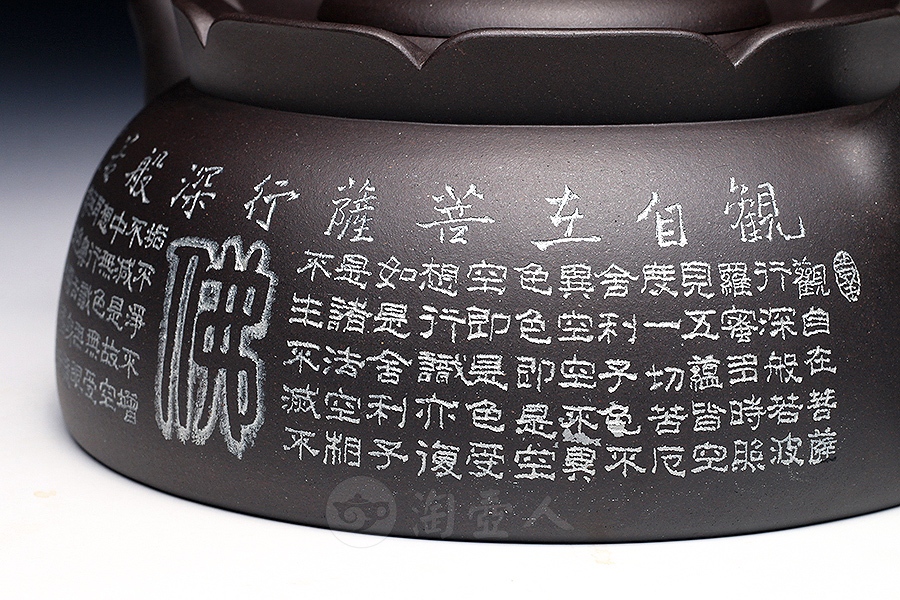 觀自在菩薩行深般若
觀自在菩薩
行深般若波
羅蜜多時照
見五蘊皆空
度一切苦厄
舍利子色不
異空空不異
色色即是空
空即是色受
想行識亦復
如是舍利子
是諸法空相
不生不滅不
佛
垢不淨不增
不減是故空
中無色無受
想行識無
淘壶人